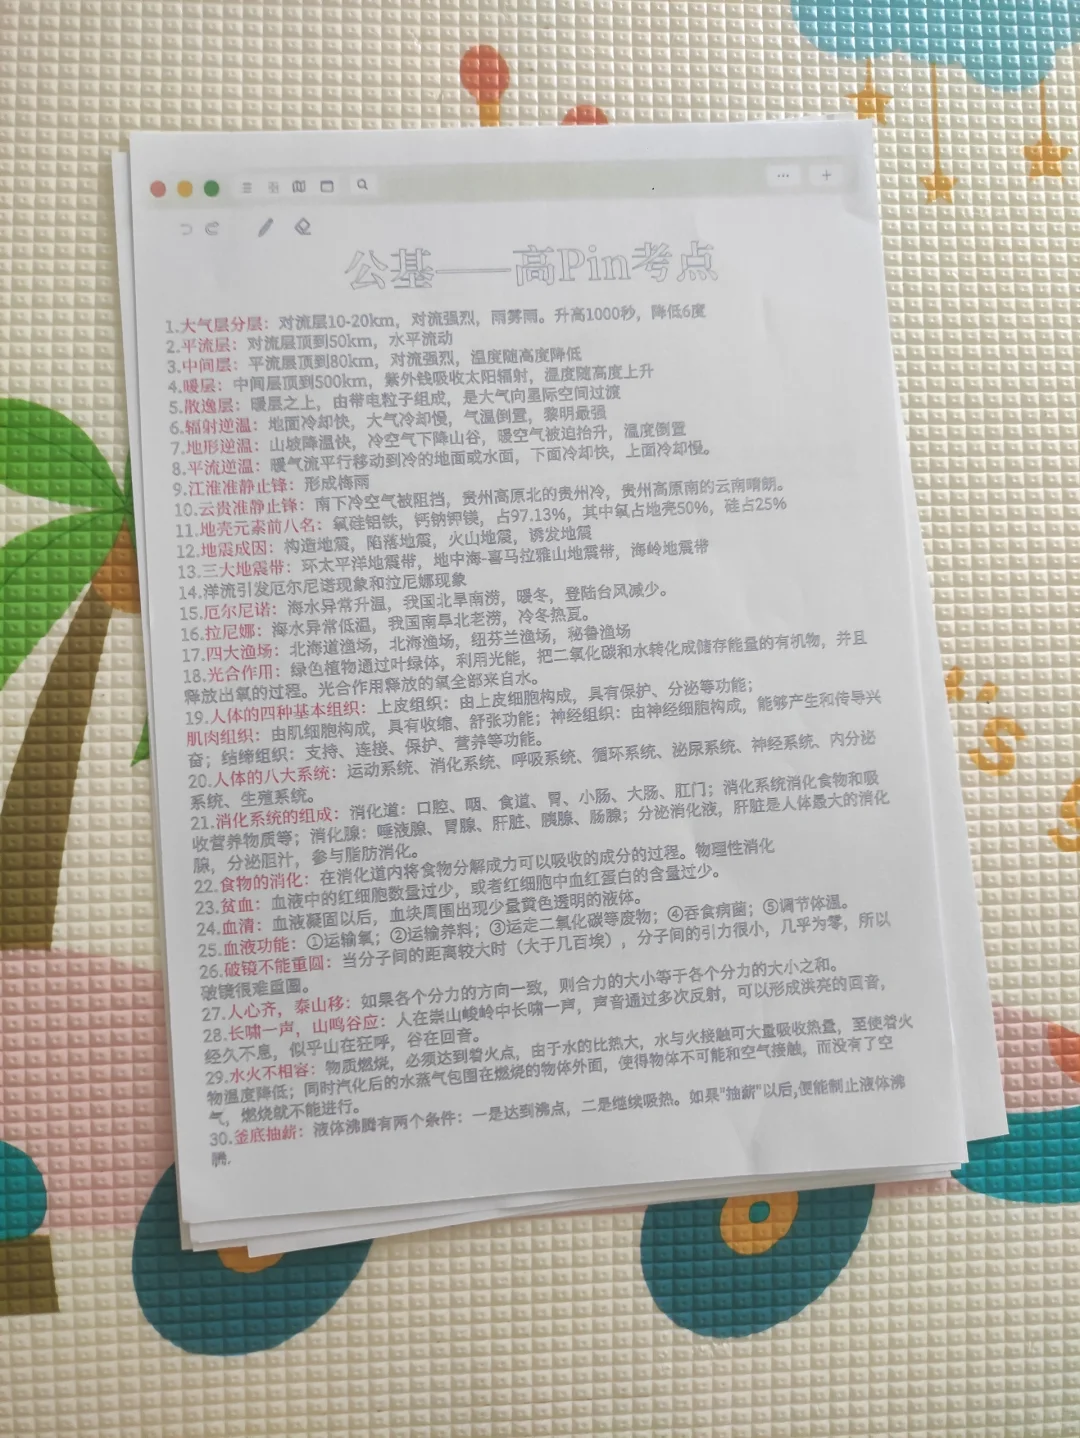 公基——高Pin考点
1.大气层分层：对流层10-20km，对流强烈，雨雾雨。升高1000秒，降低6度
2.平流层：对流层顶到50km，水平流动
3.中间层：平流层顶到80km，对流强烈，温度随高度降低
4.暖层：中间层顶到500km，紫外线吸收太阳辐射，温度随高度上升
5.散逸层：暖层之上，由带电粒子组成，是大气向星际空间过渡
6.辐射逆温：地面冷却快，大气冷却慢，气温倒置，黎明最强
7.地形逆温：山坡降温快，冷空气下降山谷，暖空气被迫抬升，温度倒置
8.平流逆温：暖气流平行移动到冷的地面或水面，下面冷却快，上面冷却慢。
9.江淮准静止锋：形成梅雨
10.云贵准静止锋：南下冷空气被阻挡，贵州高原北的贵州冷，贵州高原南的云南晴朗。
11.地壳元素前八名：氧硅铝铁，钙钠钾镁，占97.13%，其中氧占地壳50%，硅占25%
12.地震成因：构造地震，陷落地震，火山地震，诱发地震
13.三大地震带：环太平洋地震带，地中海-喜马拉雅山地震带，海岭地震带
14.洋流引发厄尔尼诺现象和拉尼娜现象
15.厄尔尼诺：海水异常升温，我国北旱南涝，暖冬，登陆台风减少。
16.拉尼娜：海水异常低温，我国南旱北老涝，冷冬热夏。
17.四大渔场：北海道渔场，北海渔场，纽芬兰渔场，秘鲁渔场
18.光合作用：绿色植物通过叶绿体，利用光能，把二氧化碳和水转化成储存能量的有机物，并且
释放出氧的过程。光合作用释放的氧全部来自水。
19.人体的四种基本组织：上皮组织：由上皮细胞构成，具有保护、分泌等功能；
肌肉组织：由肌细胞构成，具有收缩、舒张功能；神经组织：由神经细胞构成，能够产生和传导兴
奋；结缔组织：支持、连接、保护、营养等功能。
20.人体的八大系统：运动系统、消化系统、呼吸系统、循环系统、泌尿系统、神经系统、内分泌
系统、生殖系统。
21.消化系统的组成：消化道：口腔、咽、食道、胃、小肠、大肠、肛门；消化系统消化食物和吸
收营养物质等；消化腺：唾液腺、胃腺、肝脏、胰腺、肠腺；分泌消化液，肝脏是人体最大的消化
腺，分泌胆汁，参与脂肪消化。
22.食物的消化：在消化道内将食物分解成为可以吸收的成分的过程。物理性消化
23.贫血：血液中的红细胞数量过少，或者红细胞中血红蛋白的含量过少。
24.血清：血液凝固以后，血块周围出现少量黄色透明的液体。
25.血液功能：①运输氧；②运输养料；③运走二氧化碳等废物；④吞食病菌；⑤调节体温。
26.破镜不能重圆：当分子间的距离较大时（大于几百埃），分子间的引力很小，几乎为零，所以
破镜很难重圆。
27.人心齐，泰山移：如果各个分力的方向一致，则合力的大小等于各个分力的大小之和。
28.长啸一声，山鸣谷应：人在崇山峻岭中长啸一声，声音通过多次反射，可以形成洪亮的回音，
经久不息，似乎山在狂呼，谷在回音。
29.水火不相容：物质燃烧，必须达到着火点，由于水的比热大，水与火接触可大量吸收热量，至使着火
物温度降低；同时汽化后的水蒸气包围在燃烧的物体外面，使得物体不可能和空气接触，而没有了空
气，燃烧就不能进行。
30.釜底抽薪：液体沸腾有两个条件：一是达到沸点，二是继续吸热。如果"抽薪"以后,便能制止液体沸
腾.